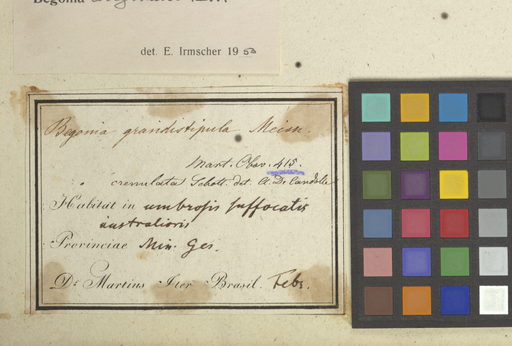 Begonia
det. E. Irmscher 1950
Begonia grandistipula Meisn.
Mart. Obs. 415.
crenulata Schott. det. A. De Candolle
Habitat in umbrosis suffocatis
australioris
Provinciae Min. Ger.
Dr. Martius Iter Brasil. Febr.